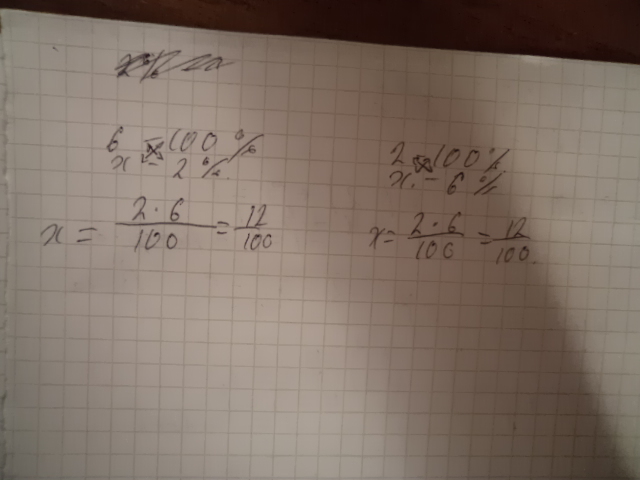 6 - 100 %
x - 2 %.
x = 2 · 6 / 100 = 12 / 100
2 100 %
x. - 6 %
x = 2 · 6 / 100 = 12 / 100.